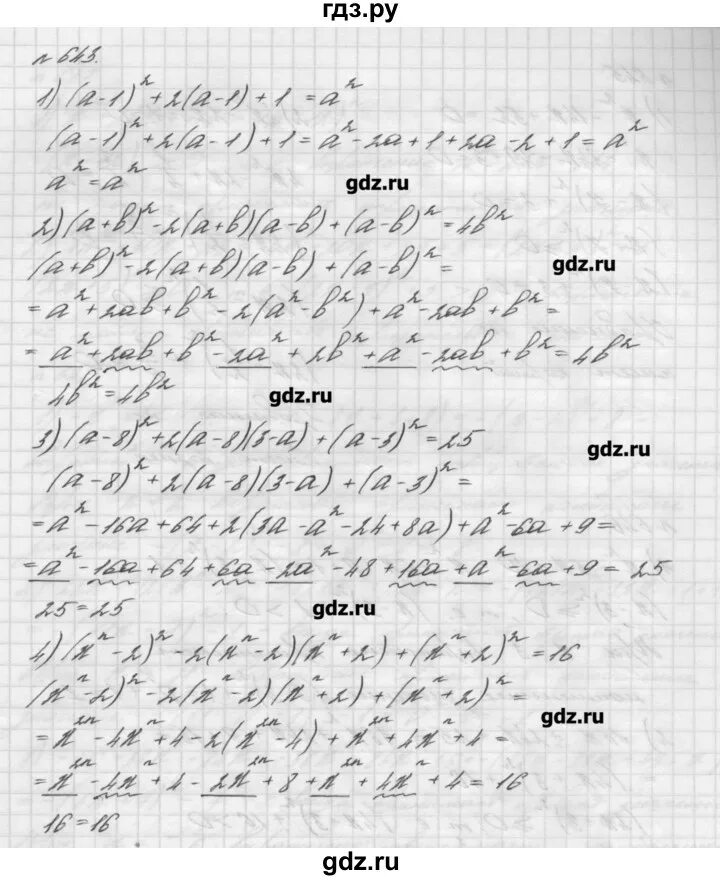 гдз.ру
№ 643.
1) (a-1)² + 2(a-1) + 1 = a²
(a-1)² + 2(a-1) + 1 = a² - 2a + 1 + 2a - 2 + 1 = a²
a² = a²
gdz.ru
2) (a+b)² - 2(a+b)(a-b) + (a-b)² = 4b²
(a+b)² - 2(a+b)(a-b) + (a-b)² =
gdz.ru
= a² + 2ab + b² - 2(a² - b²) + a² - 2ab + b² =
= a² + 2ab + b² - 2a² + 2b² + a² - 2ab + b² = 4b²
4b² = 4b²
gdz.ru
3) (a-8)² + 2(a-8)(3-a) + (a-3)² = 25
gdz.ru
(a-8)² + 2(a-8)(3-a) + (a-3)² =
= a² - 16a + 64 + 2(3a - a² - 24 + 8a) + a² - 6a + 9 =
= a² - 16a + 64 + 6a - 2a² - 48 + 16a + a² - 6a + 9 = 25
25 = 25
gdz.ru
4) (xⁿ - 2)² - 2(xⁿ - 2)(xⁿ + 2) + (xⁿ + 2)² = 16
(xⁿ - 2)² - 2(xⁿ - 2)(xⁿ + 2) + (xⁿ + 2)² =
gdz.ru
= x²ⁿ - 4xⁿ + 4 - 2(x²ⁿ - 4) + x²ⁿ + 4xⁿ + 4 =
= x²ⁿ - 4xⁿ + 4 - 2x²ⁿ + 8 + x²ⁿ + 4xⁿ + 4 = 16
16 = 16
gdz.ru